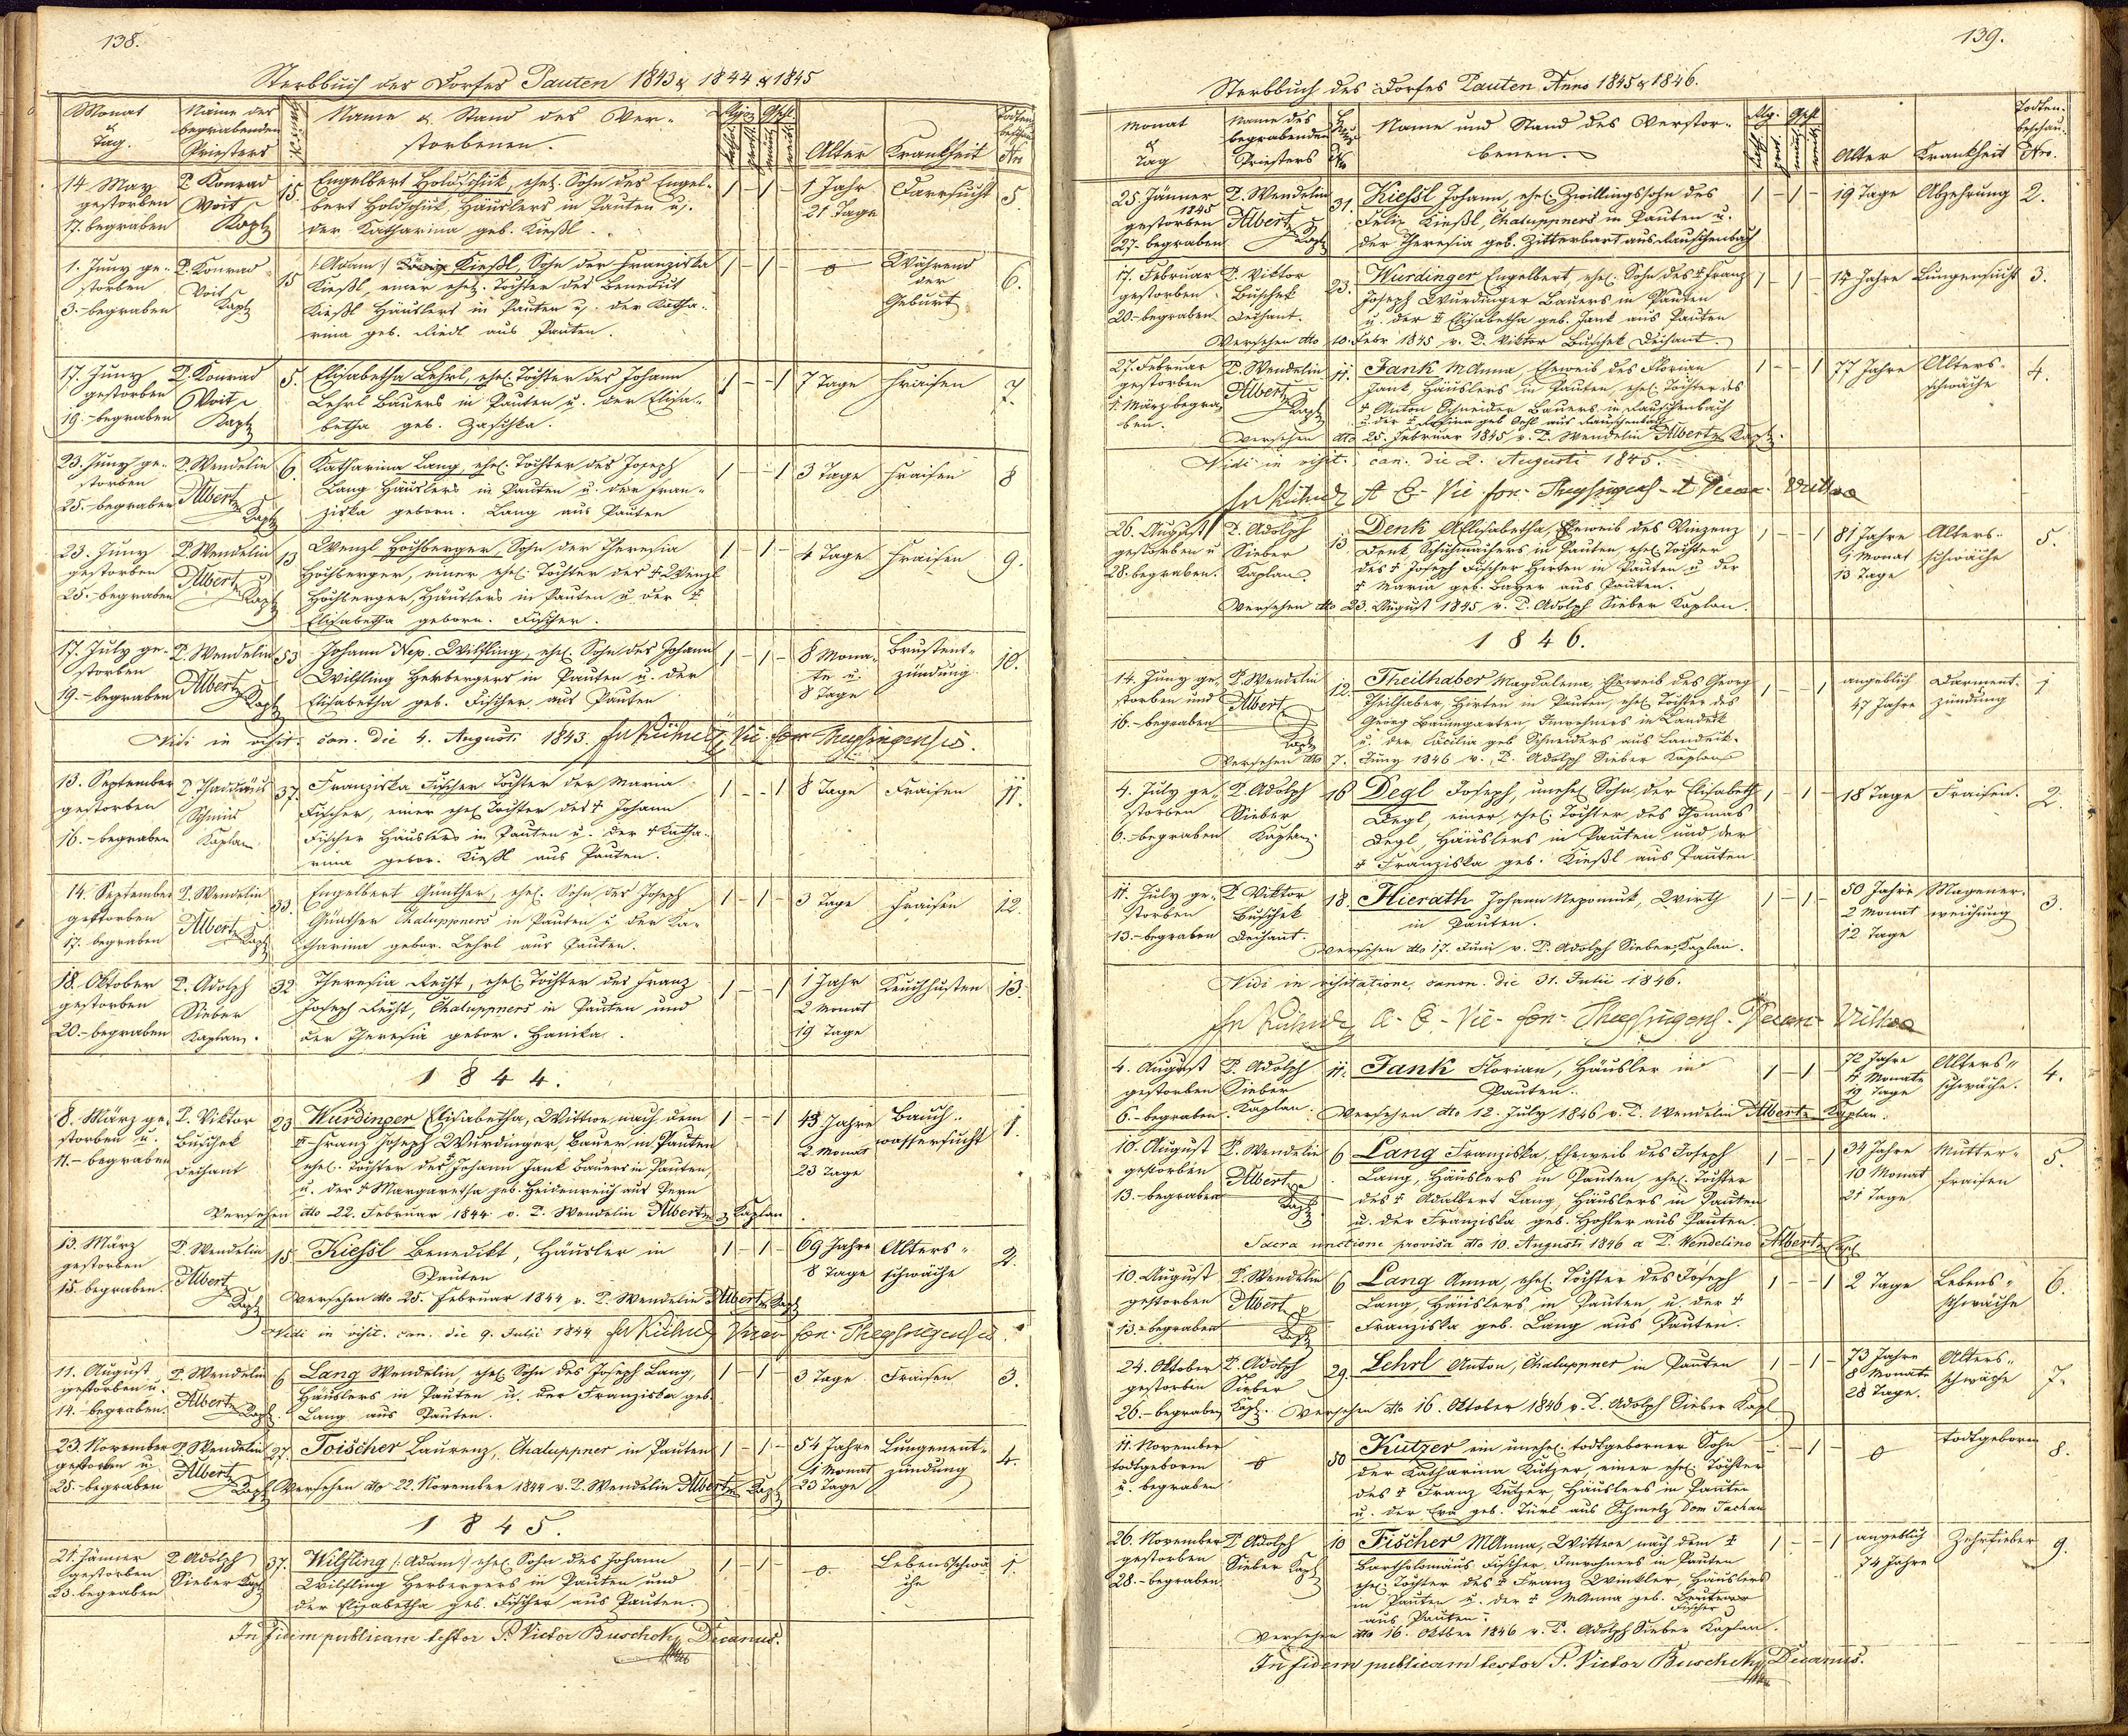 138.
Sterbbuch des Dorfes Pauten 1843 & 1844 & 1845
Monat & Tag. Name des begrabenden Priesters Name & Stand des Verstorbenen. Alter Krankheit Todtenbeschau Nro
14. May gestorben 17. begraben P. Konrad Voit Kapl 15. Engelbert Holdschick, ehel. Sohn des Engel-
bert Holdschick Häuslers in Pauten u.
der Katharina geb. Kießl.
1 - 1 - 1 Jahr 21 Tage Darrsucht 5.
1. Juny gestorben 3.- begraben P. Konrad Voit Kapl 15 /:Adam:/ Kießl, Sohn der Franziska
Kießl einer ehel. Tochter des Benedict
Kießl Häuslers in Pauten u. der Katha-
rina geb. Riedl aus Pauten.
1 - 1 - 0 Während der Geburt 6.
17. Juny gestorben 19.- begraben P. Konrad Voit Kapl 5. Elisabetha Lehrl, ehel. Tochter des Johann
Lehrl Bauers in Pauten u. der Elisa-
betha geb. Zaschka.
1 - - 1 7 Tage Fraisen 7.
23. Juny gestorben 25.- begraben P. Wendelin Albert Kapl 6. Katharina Lang, ehel. Tochter des Joseph
Lang Häuslers in Pauten u. der Fran-
ziska geborn. Lang aus Pauten
1 - - 1 3 Tage Fraisen 8
23. Juny gestorben 25.- begraben P. Wendelin Albert Kapl 13 Wenzl Hochberger, Sohn der Theresia
Hochberger, einer ehel. Tochter des † Wenzl
Hochberger, Häuslers in Pauten u. der †
Elisabetha geborn. Fischer.
1 - 1 - 4 Tage Fraisen 9.
17. July gestorben 19.- begraben P. Wendelin Albert Kapl 53 Johann Nep. Wilfling, ehel. Sohn des Johann
Wilfling Herbergers in Pauten u. der
Elisabetha geb. Fischer aus Pauten
1 - 1 - 8 Monate u. 8 Tage Brustentzündung 10.
Vidi in visit. can. die 4. Augusti 1843.
13. September gestorben 16.- begraben P. Thaddäus Kaplan 37. Franziska Fischer Tochter der Maria
Fischer, einer ehel. Tochter des † Johann
Fischer Häuslers in Pauten u. der † Katha-
rina gebor. Kießl aus Pauten.
1 - - 1 8 Tage Fraisen 11.
14. September gestorben 17. begraben P. Wendelin Albert Kapl 33. Engelbert Günther, ehel. Sohn des Joseph
Günther Chaluppners in Pauten u. der Ka-
tharina gebor. Lehrl aus Pauten.
1 - 1 - 3 Tage Fraisen 12.
18. Oktober gestorben 20.- begraben P. Adolph Sieber Kaplan. 32 Theresia Recht, ehel. Tochter des Franz
Joseph Recht, Chaluppners in Pauten und
der Theresia gebor. Hanika.
1 - - 1 1 Jahr 2 Monat 19 Tage Keuchhusten 13.
1844.
8. März gestorben u. 11.- begraben P. Viktor Buschek Dechant 23 Wurdinger Elisabetha, Wittwe nach dem
† Franz Joseph Wurdinger, Bauer in Pauten
ehel. Tochter des † Johann Jank Bauers in Pauten,
u. der † Margaretha geb. Heidenreich aus Pern
1 - - 1 43 Jahre 2 Monat 23 Tage Bauchwassersucht 1.
Versehen dto 22. Februar 1844 v. P. Wendelin Albert Kaplan
13. März gestorben 15. begraben. P. Wendelin Albert Kapl 15 Kießl Benedikt, Häusler in
Pauten
1 - 1 - 69 Jahre 8 Tage Altersschwäche 2.
Versehen dto 25. Februar 1844 v. P. Wendelin Albert Kapl
Vidi in visit. can. die 9. Julii 1844
11. August gestorben u. 14.- begraben. P. Wendelin Albert Kapl. 6 Lang Wendelin, ehel. Sohn des Joseph Lang,
Häuslers in Pauten u. der Franziska geb.
Lang aus Pauten.
1 - 1 - 3 Tage Fraisen 3.
23. November gestorben u. 25.- begraben P. Wendelin Albert Kapl 27. Toischer Laurenz, Chaluppner in Pauten
1 - 1 - 54 Jahre 1 Monat 23 Tage Lungenentzündung 4.
Versehen dto 22. November 1844 v. P. Wendelin Albert Kapl
1845.
21. Jänner gestorben 23. begraben P. Adolph Sieber Kapl 37. Wilfling /:Adam:/ ehel. Sohn des Johann
Wilfling Herbergers in Pauten und
der Elisabetha geb. Fischer aus Pauten.
1 - 1 - 0. Lebensschwäche 1.
In fidem publicam testor P. Victor Buschek, Decanus.
139.
Sterbbuch des Dorfes Pauten Anno 1845 & 1846.
Monat & Tag Name des begrabenden Priesters Name und Stand des Verstorbenen. Alter Krankheit Todtenbeschau Nro.
25. Jänner 1845 gestorben 27.- begraben P. Wendelin Albert Kapl 31. Kießl Johann, ehel. Zwillingssohn des
Felix Kießl, Chaluppners in Pauten u.
der Theresia geb. Zitterbart aus Rauschenbach
1 - 1 - 19 Tage Abzehrung 2.
17. Februar gestorben 20.- begraben P. Viktor Buschek Dechant. 23. Wurdinger Engelbert ehel. Sohn des † Franz
Joseph Wurdinger Bauers in Pauten
u. der † Elisabetha geb. Jank aus Pauten
1 - 1 - 14 Jahre Lungensucht 3.
Versehen dto 10. Febr 1845 v. P. Viktor Buschek Dechant.
27. Februar gestorben 1. März begraben. P. Wendelin Albert Kapl 11. Jank MAnna, Eheweib des Florian
Jank Häuslers in Pauten, ehel. Tochter des
† Anton Schneider Bauers in Rauschenbach
u. der † Rosina geb. aus Rauschenbach
1 - - 1 77 Jahre Altersschwäche 4.
Versehen dto 25. Februar 1845 v. P. Wendelin Albert Kapl.
Vidi in visit. can. die 2. Augusti 1845.
26. August gestorben u 28. begraben. P. Adolph Sieber Kaplan. 13 Denk Elisabetha, Eheweib des Vinzenz
Denk, Schuhmachers in Pauten, ehel. Tochter
des † Joseph Fischer Hirten in Pauten u der
† Maria geb. Bayer aus Pauten.
1 - - 1 81 Jahre 9 Monat 13 Tage Altersschwäche 5.
Versehen dto 23. August 1845 v. P. Adolph Sieber Kaplan.
1846.
14. Juny gestorben und 16.- begraben P. Wendelin Albert Kapl 12. Theilhaber Magdalena, Eheweib des Georg
Theilhaber, Hirten in Pauten, ehel. Tochter des
Georg Baumgarten, Inwohners in Landek
u. der Cäcilia geb Schneiders aus Landek.
1 - - 1 angeblich 47 Jahre Darmentzündung 1
Versehen dto 7. Juny 1846 v. P. Adolph Sieber Kaplan
4. July gestorben 6.- begraben P. Adolph Sieber Kaplan. 16 Degl Joseph, unehel. Sohn der Elisabeth
Degl, einer ehel. Tochter des Thomas
Degl, Häuslers in Pauten und der
† Franziska geb. Kießl aus Pauten
1 - 1 - 18 Tage Fraisen. 2.
11. July gestorben 13.- begraben P. Viktor Buschek Dechant. 18. Hierath Johann Nepomuk, Wirth
in Pauten.
1 - 1 - 50 Jahre 2 Monat 12 Tage Magenerweichung 3.
Versehen dto 17. Juni v. P. Adolph Sieber, Kaplan.
Vidi in visitatione canon. die 31. Julii 1846.
4. August gestorben 6.- begraben. P. Adolph Sieber Kaplan. 11. Jank Florian, Häusler in
Pauten.
1 - 1 - 72 Jahre 11 Monate 19 Tage Altersschwäche. 4.
Versehen dto 12. July 1846 v. P. Wendelin Albert Kaplan.
10. August gestorben 13.- begraben P. Wendelin Albert Kapl 6 Lang Franziska, Eheweib des Joseph
Lang, Häuslers in Pauten, ehel. Tochter
des † Adalbert Lang, Häuslers in Pauten
u. der Franziska geb. Hohler aus Pauten.
1 - - 1 34 Jahre 10 Monat 21 Tage Mutterfraisen 5.
Sacra unctione provisa dto 10. Augusti 1846 a P. Wendelino Albert Capl
10. August gestorben 13.- begraben P. Wendelin Albert Kapl 6 Lang Anna, ehel. Tochter des Joseph
Lang, Häuslers in Pauten, u. der †
Franziska geb. Lang aus Pauten.
1 - - 1 2 Tage Lebensschwäche 6.
24. Oktober gestorben 26.- begraben P. Adolph Sieber Kapl. 29. Lehrl Anton, Chaluppner in Pauten
1 - 1 - 73 Jahre 8 Monate 28 Tage. Altersschwäche 7.
Versehen dto 16. Oktober 1846 v. P. Adolph Sieber Kapl
11. November todtgeboren u. begraben 0 50 Kutzer ein unehel. todtgeborner Sohn
der Katharina Kutzer, einer ehel. Tochter
des † Franz Kutzer, Häuslers in Pauten
u. der Eva geb. Türl aus Schmelz Dom Tachau
- 1 - 0 todtgeboren 8.
26. November gestorben 28.- begraben. P. Adolph Sieber Kapl 10 Fischer MAnna, Wittwe nach dem †
Bartholomäus Fischer, Inwohners in Pauten
ehel. Tochter des † Franz Winkler, Häuslers
in Pauten u. der † MAnna geb.
Fischer
aus Pauten.
1 - - 1 angeblich 74 Jahre Zehrfieber 9.
Versehen dto 16. Oktber 1846 v. P. Adolph Sieber Kaplan.
In fidem publicam testor P. Victor Buschek, Decanus.